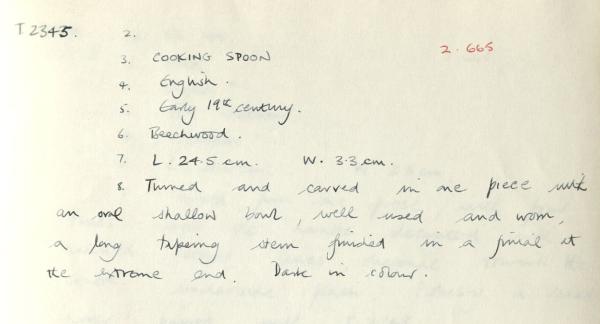 T2345. 2.
2.665
3. COOKING SPOON
4. English.
5. Early 19th century.
6. Beechwood.
7. L. 24.5 cm. W. 3.3 cm.
8. Turned and carved in one piece with
an oval shallow bowl, well used and worn,
a long tapering stem finished in a finial at
the extreme end. Dark in colour.